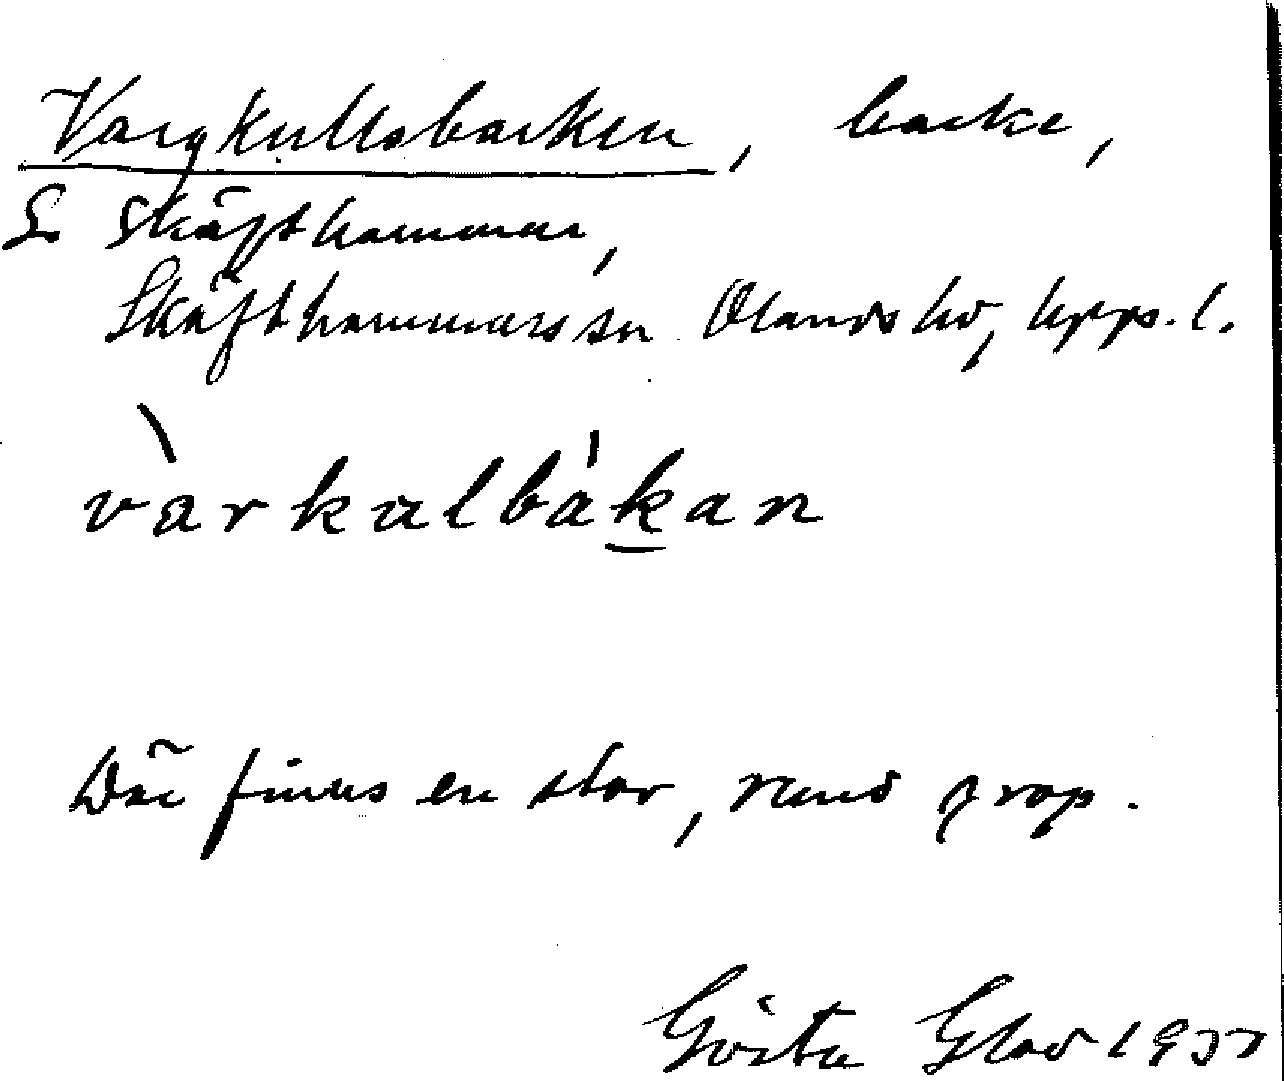 Vargkullsbacken, backe,
L. Skäfthammar,
Skäfthammars sn Olands hd, Upps. l.
vàrkulbákan
Där finns en stor, rund grop.
Gösta Glad